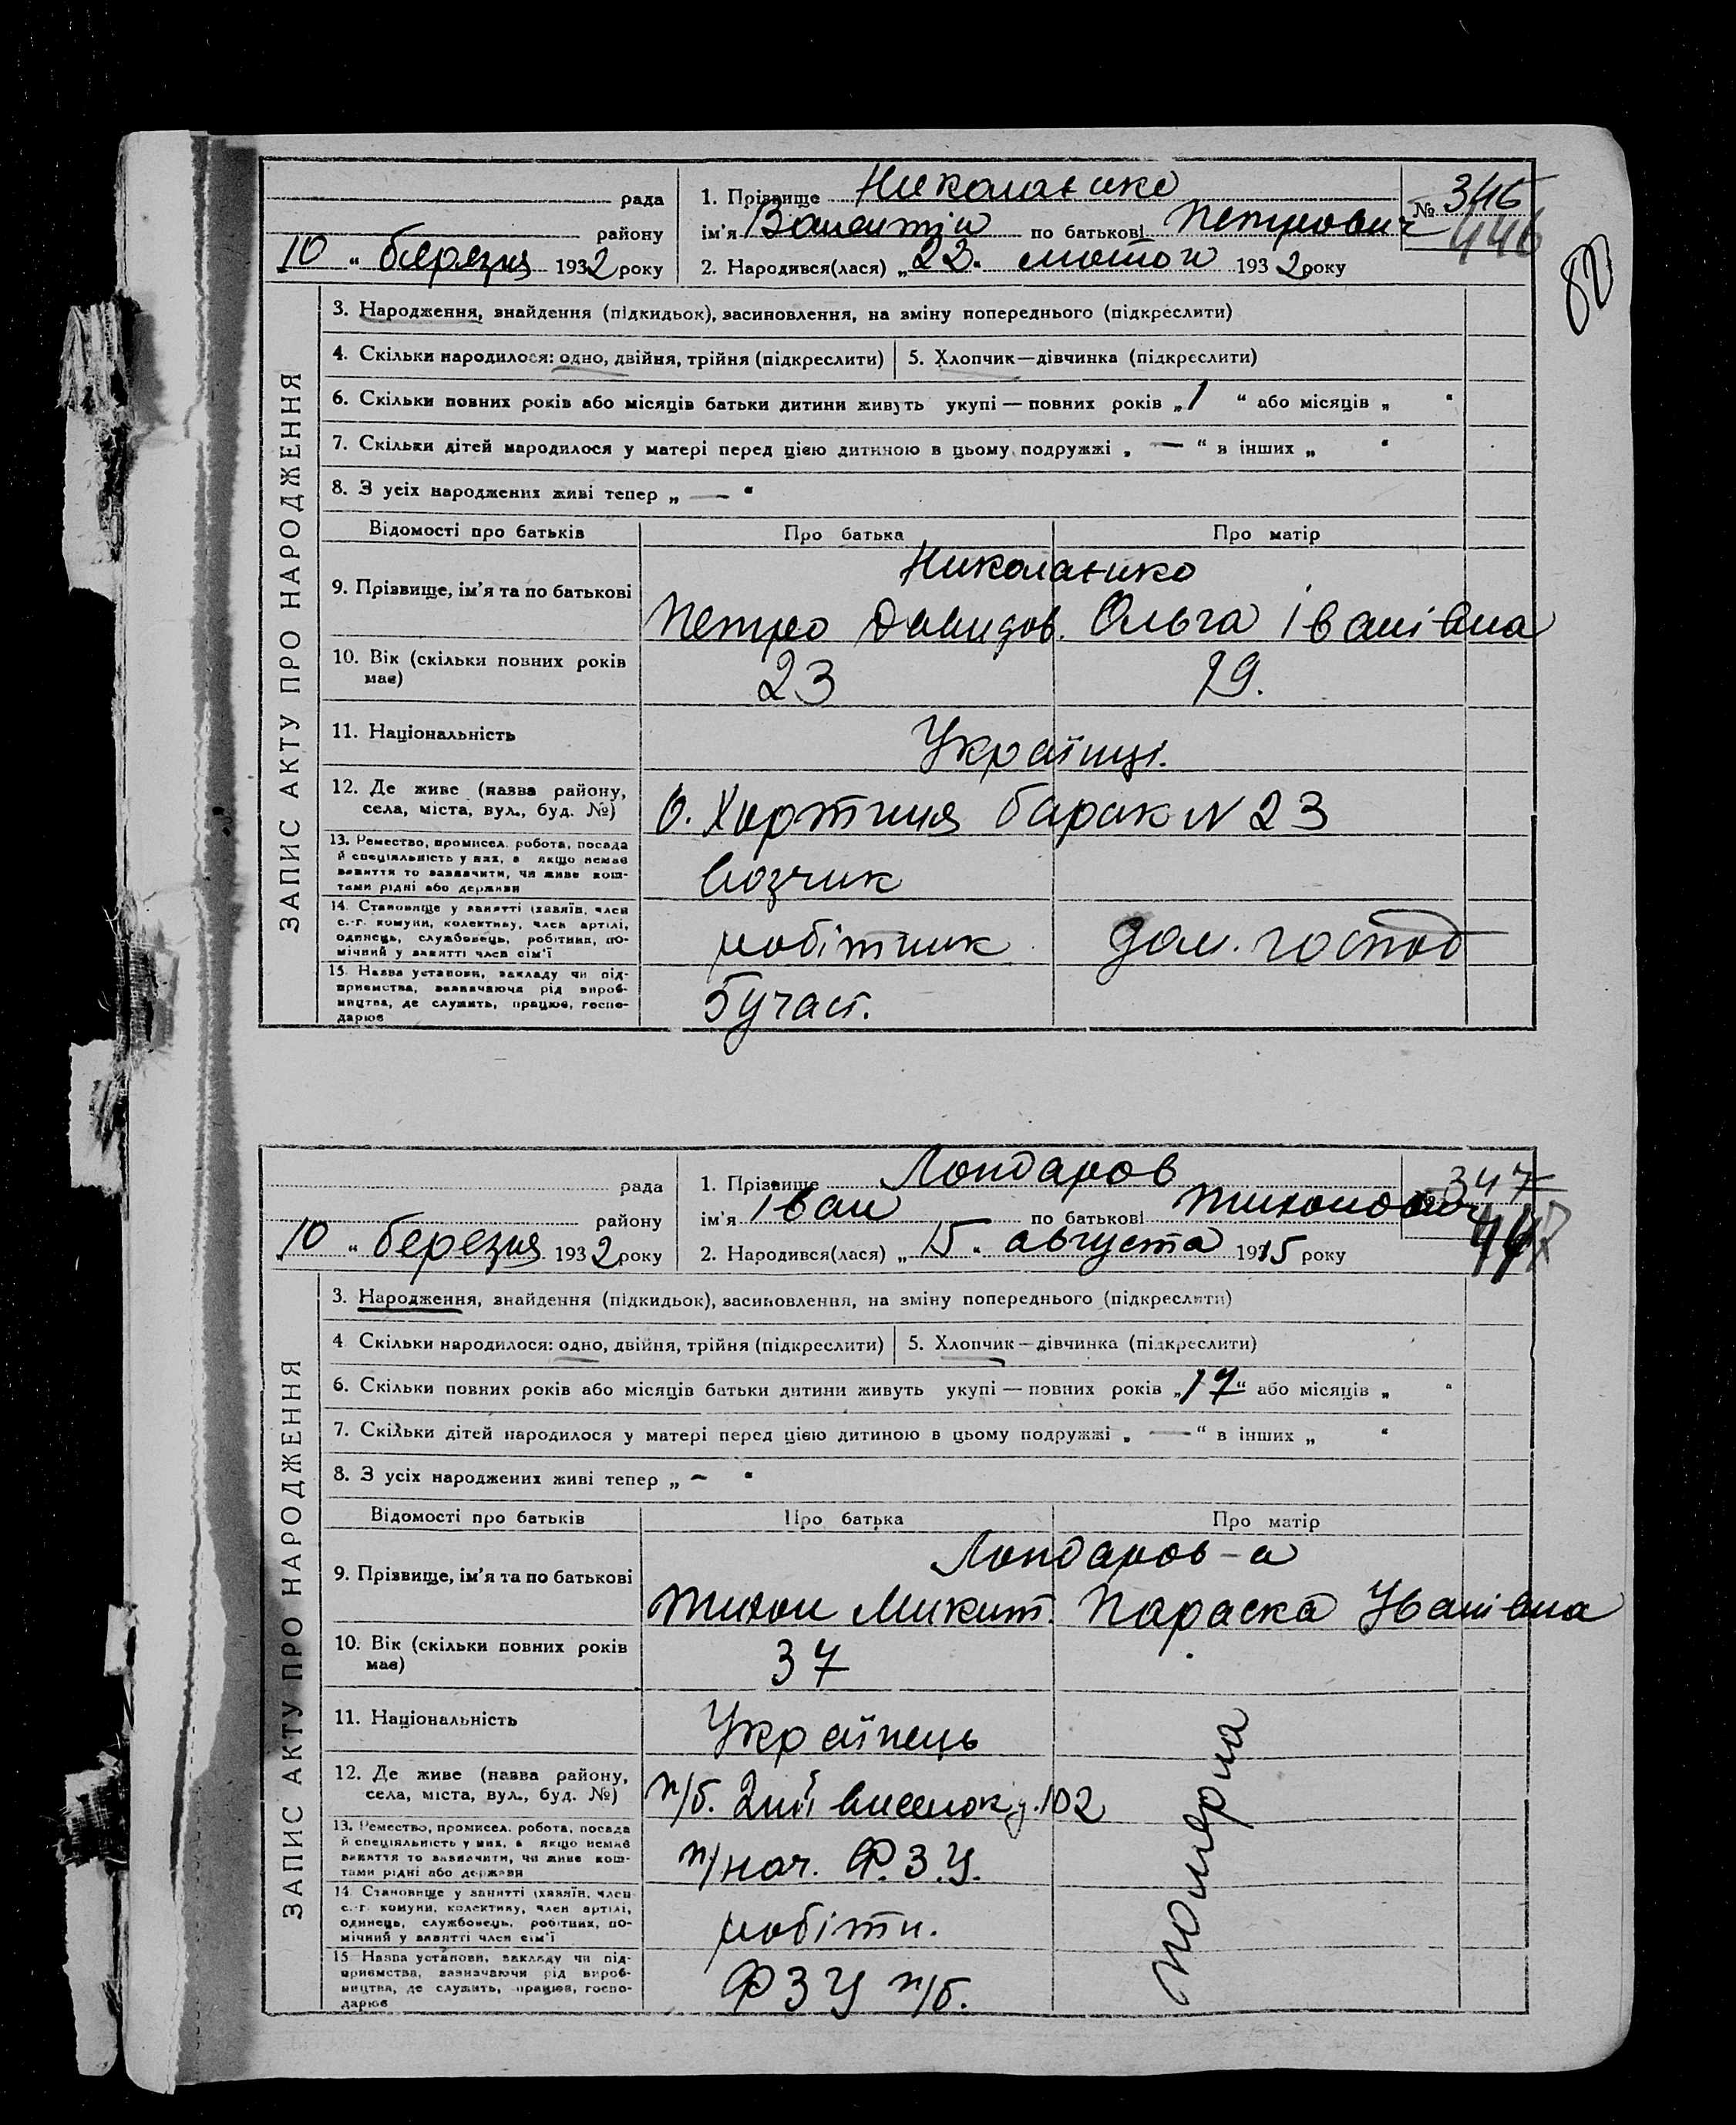 рада
1. Прізвище Николаєнко
№ 346
446
району
ім'я Валентин по батькові Петрович
10 „ березня 1932 року
2. Народився(лася) „22" лютого 1932 року
82
ЗАПИС АКТУ ПРО НАРОДЖЕННЯ
3. Народження, знайдення (підкидьок), засиновлення, на зміну попереднього (підкреслити)
4. Скільки народилося: одно, двійня, трійня (підкреслити)
5. Хлопчик—дівчинка (підкреслити)
6. Скільки повних років або місяців батьки дитини живуть укупі — повних років „1 " або місяців „ "
7. Скільки дітей народилося у матері перед цією дитиною в цьому подружжі „ — " в інших „ "
8. З усіх народжених живі тепер „ — "
Відомості про батьків
Про батька
Про матір
9. Прізвище, ім'я та по батькові
Николаенко
Петро Давидов. Ольга Іванівна
10. Вік (скільки повних років має)
23
19.
11. Національність
Українці.
12. Де живе (назва району, села, міста, вул., буд. №)
О. Хортиця барак N 23
13. Ремество, промисел, робота, посада й спеціяльність у них, а якщо немає заняття то зазначити, чи живе коштами рідні або держави
возчик
14. Становище у занятті (хазяїн, член с.-г. комуни, колективу, член артілі, одинець, службовець, робітник, помічний у занятті член сім'ї
робітник
дом. господ
15. Назва установи, закладу чи підприємства, зазначаючи рід виробництва, де служить, працює, господарює
5 участ.
рада
1. Прізвище Лондаров
347
району
ім'я Іван по батькові Тихонович
447
10 „ березня 1932 року
2. Народився(лася) „15" августа 1915 року
ЗАПИС АКТУ ПРО НАРОДЖЕННЯ
3. Народження, знайдення (підкидьок), засиновлення, на зміну попереднього (підкреслити)
4 Скільки народилося: одно, двійня, трійня (підкреслити)
5. Хлопчик—дівчинка (підкреслити)
6. Скільки повних років або місяців батьки дитини живуть укупі — повних років „17" або місяців „ "
7. Скільки дітей народилося у матері перед цією дитиною в цьому подружжі „ — " в інших „ "
8. З усіх народжених живі тепер „ — "
Відомості про батьків
Про батька
Про матір
9. Прізвище, ім'я та по батькові
Лондаров-а
Тихон Микит. Параска Іванівна
10. Вік (скільки повних років має)
37
11. Національність
Українець
12. Де живе (назва району, села, міста, вул., буд. №)
п/б. 2ий виселок д. 102
13. Ремество, промисел, робота, посада й спеціяльність у них, а якщо немає заняття то зазначити, чи живе коштами рідні або держави
п/нач. Ф.З.У.
14. Становище у занятті (хазяїн, член с.-г. комуни, колективу, член артілі, одинець, службовець, робітник, помічний у занятті член сім'ї
робітн.
15. Назва установи, закладу чи підприємства, зазначаючи рід виробництва, де служить, працює, господарює
ФЗУ п/б.
померла